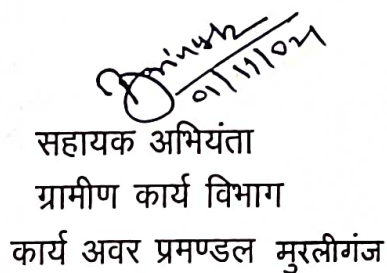 01/11/02
सहायक अभियंता
ग्रामीण कार्य विभाग
कार्य अवर प्रमण्डल मुरलीगंज